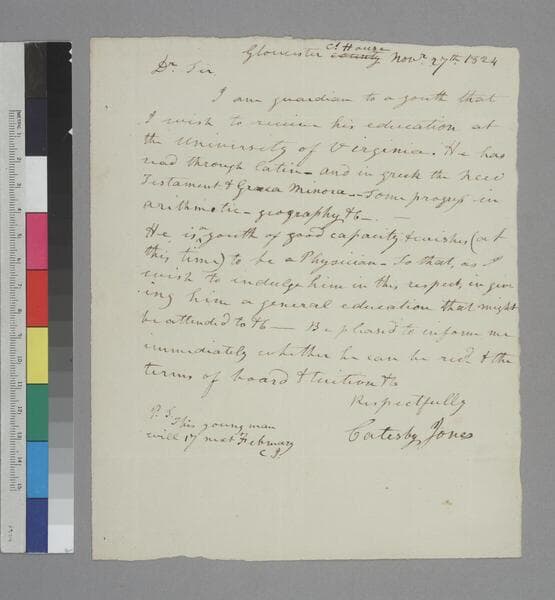 Gloucester Ct. House county Novr. 27th. 1824
Dr. Sir
I am guardian to a youth that
I wish to receive his education at
the University of Virginia. He has
read through latin – and in greek the New
Testament & Græca Minora – Some progress in
arithmetic – geography &c – –
He is a youth of good capacity & wishes (at
this time) to be a Physician – So that, as I
wish to indulge him in this respect, in giv-
ing him a general education that might
be attended to &c – Be pleased to inform me
immediately whether he can be recd. & the
terms of board & tuition &c
Respectfully
Catesby Jones
P.S. This young man
will 17 next February
C J.